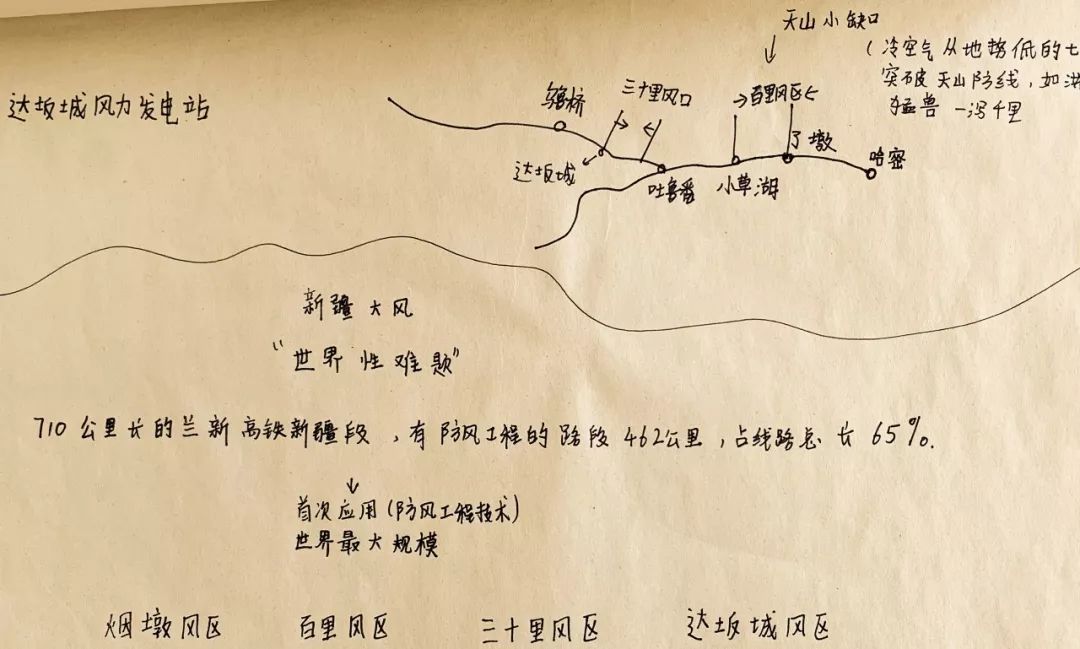 天山小缺口
(冷空气从地势低的
突破天山防线，如洪
猛兽 一泻千里
达坂城风力发电站
三十里风口
→百里风区←
桥
了墩
达坂城
哈密
吐鲁番
小草湖
新疆大风
“世界性难题”
710公里长的兰新高铁新疆段，有防风工程的路段462公里，占线路总长65%.
首次应用(防风工程技术)
世界最大规模
烟墩风区 百里风区 三十里风区 达坂城风区